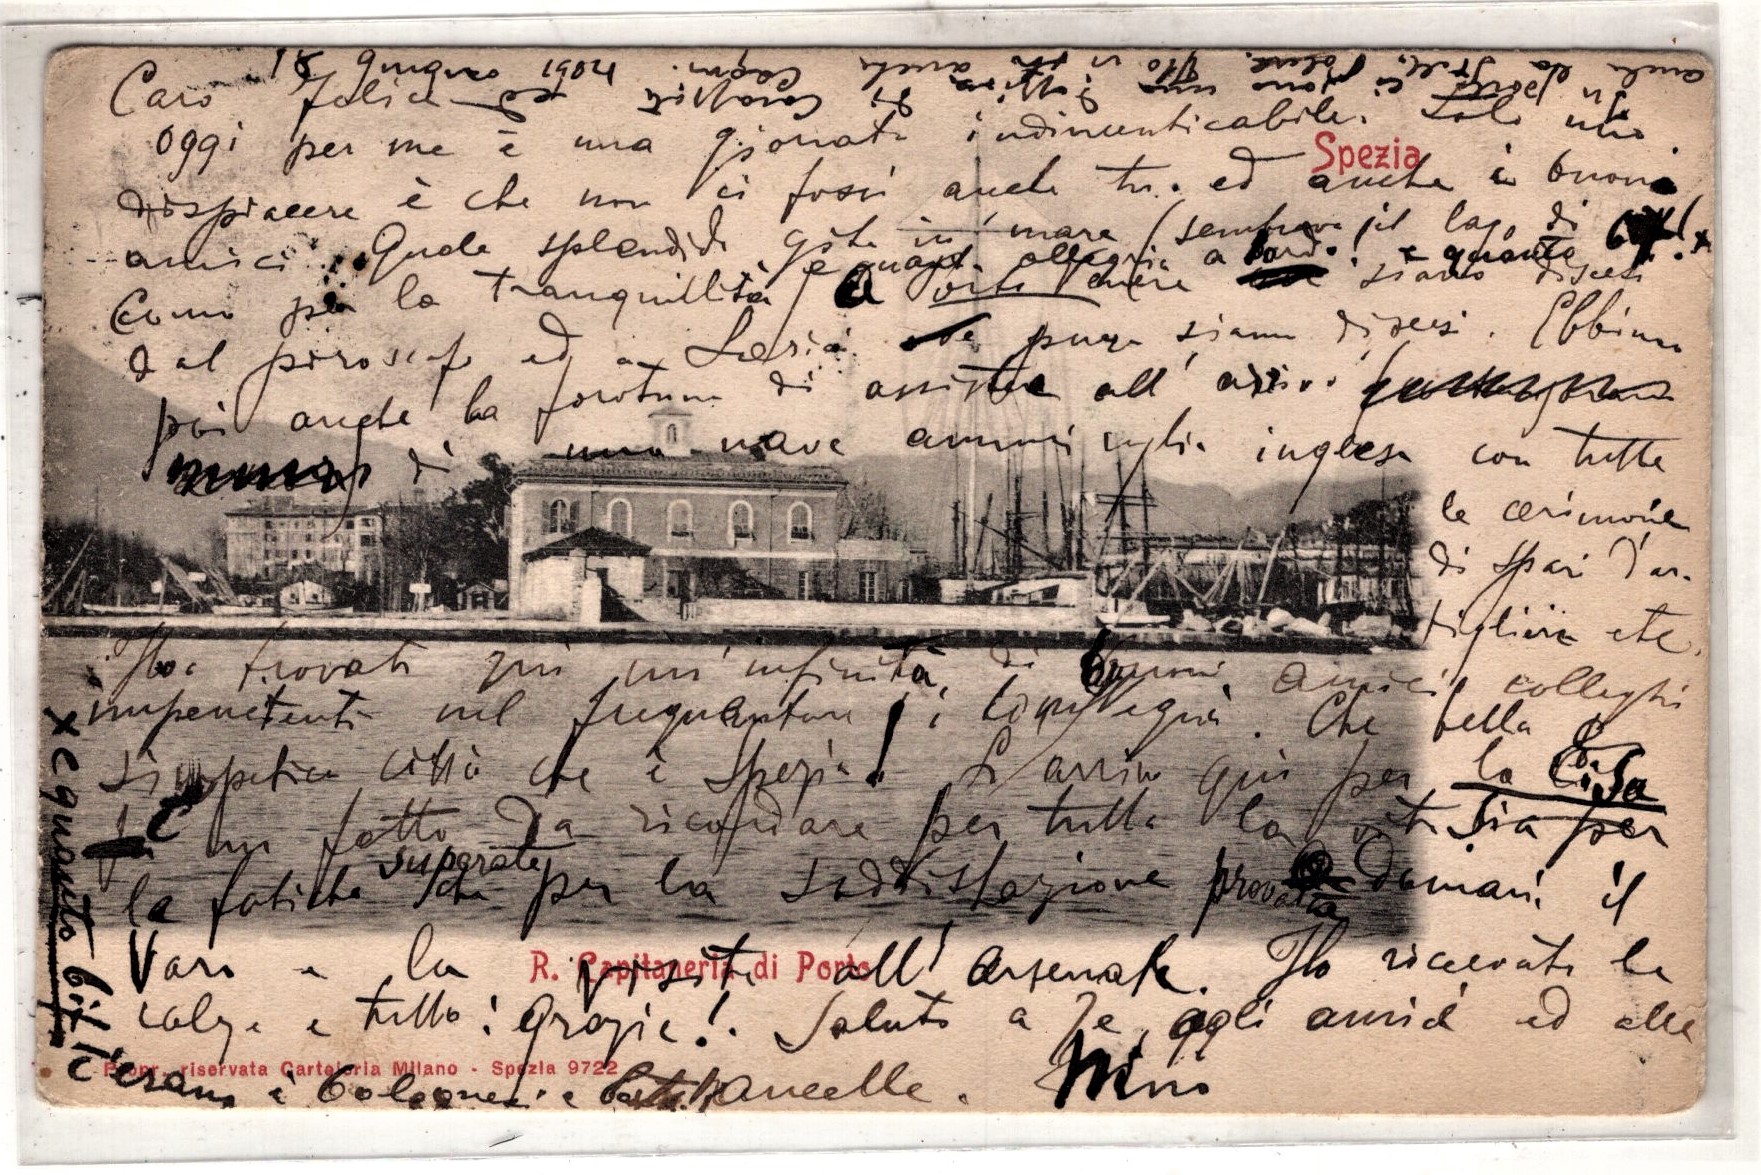 Caro Felice
Oggi per me è una giornata indimenticabile. Solo mio
dispiacere è che non ci fossi anche tu. ed anche i buoni
amici. Quale splendida gita in mare (sembrava il lago di
e quanta allegria a bordo! e quante
Come per la tranquillità) A Porto Venere siamo discesi
dal piroscafo ed a Lerici pure siamo discesi. Ebbimo
poi anche la fortuna di assistere all' arrivo
di una nave ammiraglia inglese con tutte
le cerimonie
di spari d'ar-
tiglieria etc.
Ho trovati qui un'infinità di buoni amici colleghi
impenitenti nel frequentare i convegni. Che bella
simpatica città che è Spezia! Si arriva qui per la Cisa
È un fatto da ricordare per tutta la vita sia per
le fatiche superate che per la soddisfazione provata
Domani il
Varo e la visita all' arsenale. Ho ricevuto le
calze e tutto! Grazie!. Saluti a Te, agli amici ed alle
ancelle. Nino
x e quanto bif
c'erano i bolognesi e
12 giugno 1904
Spezia
R. Capitaneria di Porto
Propr. riservata Carteleria Milano - Spezia 9722